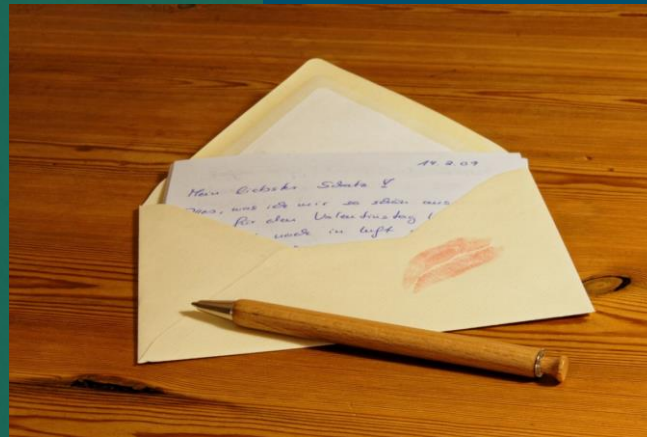 14.2.09
Mein liebster Schatz!
was ich mir so schön aus
für den Valentinstag
wurde in Luft